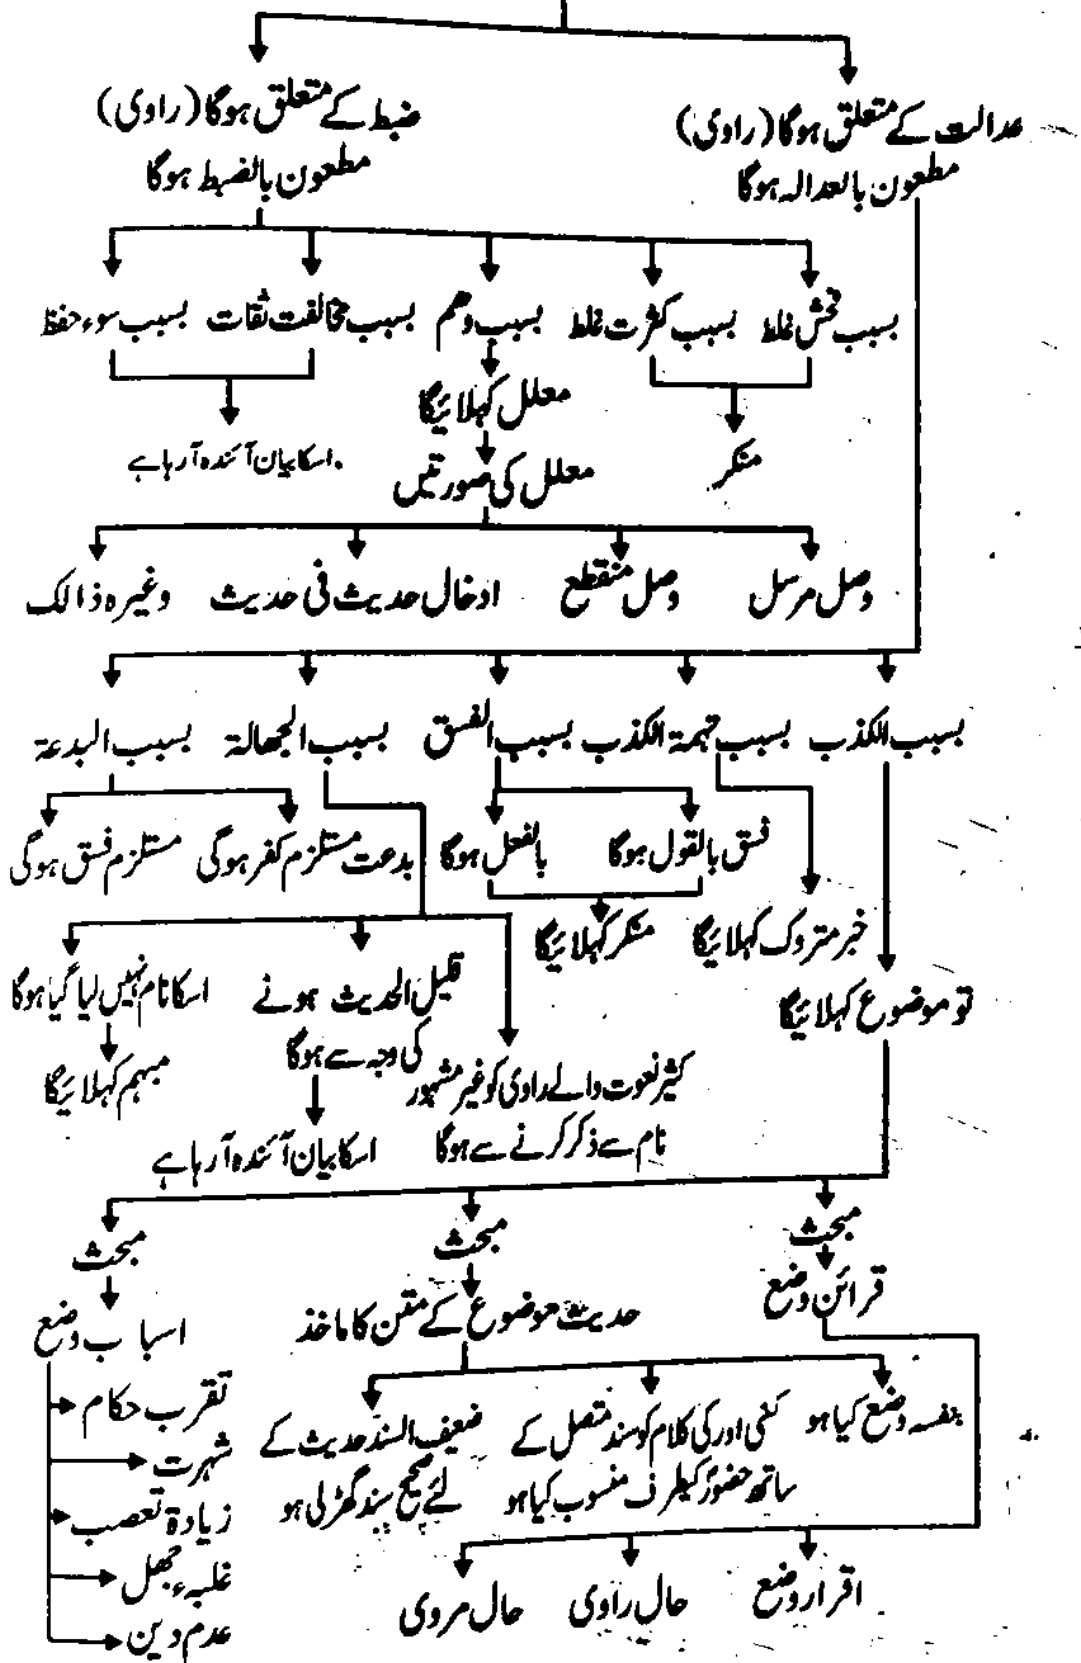 عدالت کے متعلق ہوگا (راوی)
مطعون بالعدالہ ہوگا
ضبط کے متعلق ہوگا (راوی)
مطعون بالضبط ہوگا
بسبب فحش غلط
بسبب کثرت غلط
بسبب وھم
بسبب مخالفت ثقات
بسبب سوء حفظ
منکر
معلل کہلائیگا
معلل کی صورتیں
اسکا بیان آئندہ آرہا ہے
وصل مرسل
وصل منقطع
ادخال حدیث فی حدیث
وغیرہ ذالک
بسبب الکذب
بسبب تہمة الکذب
بسبب الفسق
بسبب الجھالة
بسبب البدعة
فسق بالقول ہوگا
بالفعل ہوگا
بدعت مستلزم کفر ہوگی
مستلزم فسق ہوگی
خبر متروک کہلائیگا
منکر کہلائیگا
تو موضوع کہلائیگا
قلیل الحدیث ہونے
کی وجہ سے ہوگا
اسکا نام نہیں لیا گیا ہوگا
مبہم کہلائیگا
کثیر نعوت والے راوی کو غیر مشہور
نام سے ذکر کرنے سے ہوگا
اسکا بیان آئندہ آرہا ہے
مبحث
مبحث
مبحث
قرائن وضع
حدیث موضوع کے متن کا ماخذ
اسباب وضع
بنفسہ وضع کیا ہو
کسی اور کی کلام کو سند متصل کے
ساتھ حضورؐ کیطرف منسوب کیا ہو
ضعیف السند حدیث کے
لئے صحیح سند گھڑلی ہو
تقرب حکام
شہرت
زیادة تعصب
غلبہء جھل
عدم دین
اقرار وضع
حال راوی
حال مروی